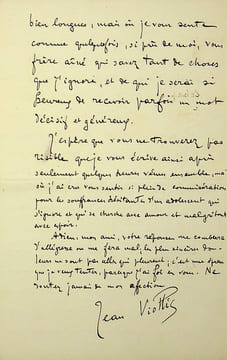 bien longues, mais où je vous sente
comme quelquefois, si près de moi, vous
frère aîné qui savez tant de choses
que j'ignore, et de qui je serai si
heureux de recevoir parfois un mot
décisif et généreux.
J'espère que vous ne trouverez pas
risible que je vous écrive ainsi après
seulement quelques heures vécues ensemble, mais
où j'ai cru vous sentir si plein de commisération
pour les souffrances d'un adolescent qui
s'ignore et qui se cherche avec amour et
avec espoir.
Adieu, mon ami, votre réponse me comblera
d'allégresse ou me fera mal, les plus sincères dou-
leurs ne sont pas celles qui pleurent; c'est une épreuve
que je veux tenter, parce que j'ai foi en vous. Ne
doutez jamais de mon affection
Jean Viollis